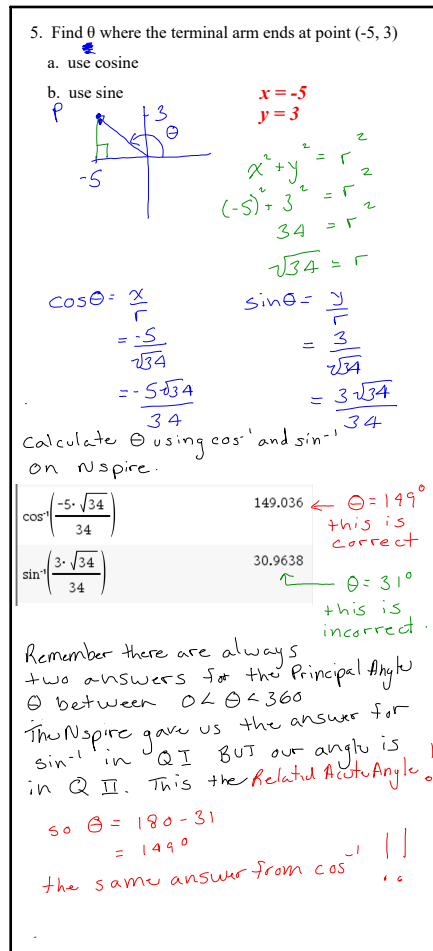 5. Find θ where the terminal arm ends at point (-5, 3)
a. use cosine
b. use sine
x = -5
y = 3
P
3
θ
-5
x² + y² = r²
(-5)² + 3² = r²
34 = r²
√34 = r
cosθ = x/r
= -5/√34
= -5√34/34
sinθ = y/r
= 3/√34
= 3√34/34
Calculate θ using cos⁻¹ and sin⁻¹
on Nspire.
cos⁻¹(-5·√34/34) 149.036 ← θ = 149°
this is
correct
sin⁻¹(3·√34/34) 30.9638
θ = 31°
this is
incorrect.
Remember there are always
two answers for the Principal Angle
θ between 0 < θ < 360
The Nspire gave us the answer for
sin⁻¹ in QI BUT our angle is
in Q II. This the Related Acute Angle!
so θ = 180 - 31
= 149°
the same answer from cos⁻¹ !!